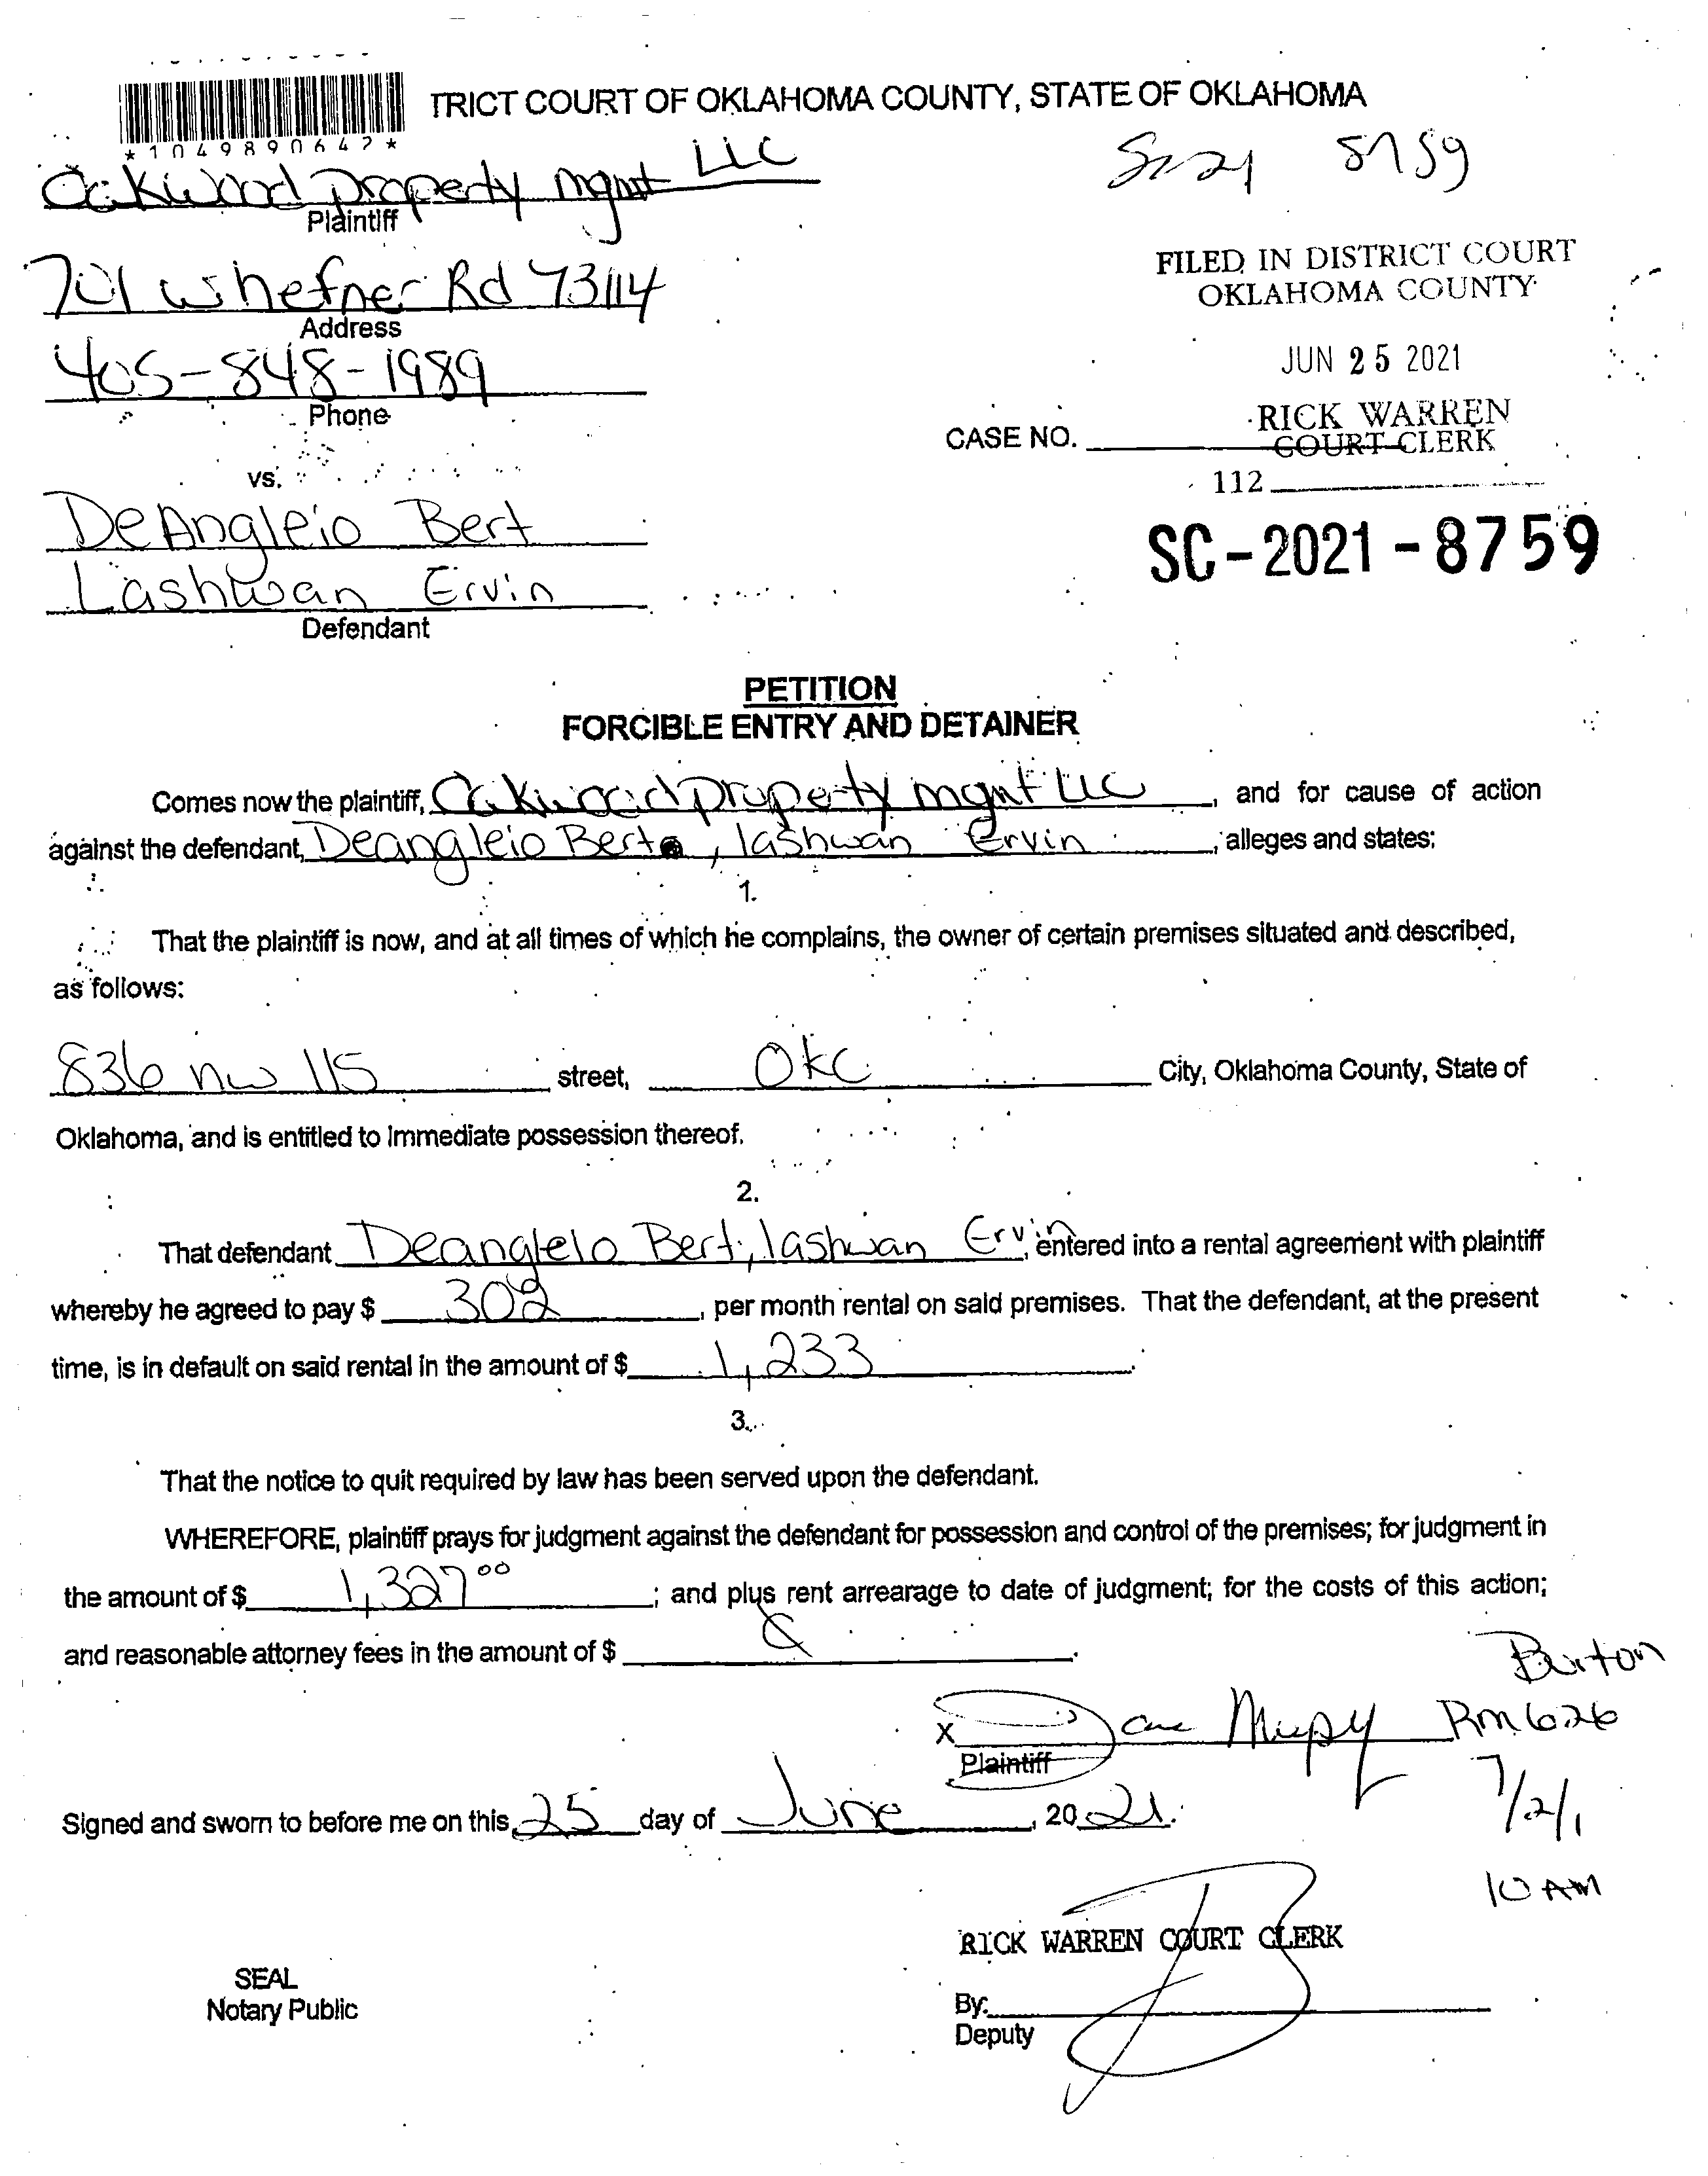 TRICT COURT OF OKLAHOMA COUNTY, STATE OF OKLAHOMA
*1049890642*
Oakwood Property mgmt LLC
Plaintiff
8759
701 W hefner Rd 73114
Address
FILED IN DISTRICT COURT
OKLAHOMA COUNTY
405-848-1989
Phone
JUN 25 2021
RICK WARREN
COURT CLERK
CASE NO.
112
vs.
DeAngleio Bert
Lashwan Ervin
Defendant
SC-2021-8759
PETITION
FORCIBLE ENTRY AND DETAINER
Comes now the plaintiff, Oakwood property mgmt LLC, and for cause of action
against the defendant, Deangleio Bert, lashwan Ervin, alleges and states:
1.
That the plaintiff is now, and at all times of which he complains, the owner of certain premises situated and described,
as follows:
836 nw 115 street, OKC City, Oklahoma County, State of
Oklahoma, and is entitled to immediate possession thereof.
2.
That defendant Deanglelo Bert, lashwan Ervin, entered into a rental agreement with plaintiff
whereby he agreed to pay $ 302, per month rental on said premises. That the defendant, at the present
time, is in default on said rental in the amount of $ 1,233.
3.
That the notice to quit required by law has been served upon the defendant.
WHEREFORE, plaintiff prays for judgment against the defendant for possession and control of the premises; for judgment in
the amount of $ 1,327.00; and plus rent arrearage to date of judgment; for the costs of this action;
and reasonable attorney fees in the amount of $
Burton
X
Rm 626
Plaintiff
Signed and sworn to before me on this 25 day of June, 2021.
10 AM
RICK WARREN COURT CLERK
SEAL
Notary Public
By:
Deputy